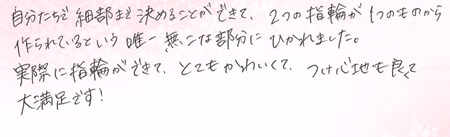 自分たちで細部まで決めることができて、2つの指輪が1つのものから
作られているという唯一無二な部分にひかれました。
実際に指輪ができて、とてもかわいくて、つけ心地も良くて
大満足です!